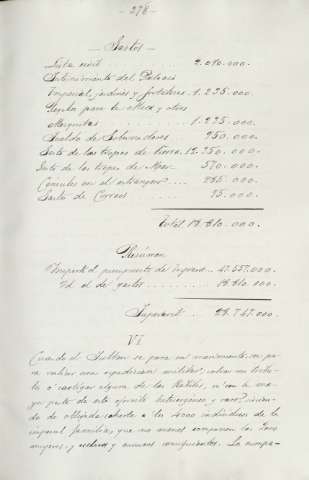 - 278 -
- Gastos -
Lista civil . . . . . . 2.010.000.
Entretenimiento del Palacio
Imperial, jardines y fortalezas. 1.235.000.
Regalos para la Meca y otras
Mezquitas . . . . . 1.235.000.
Sueldo de Gobernadores 950.000.
Gasto de las tropas de tierra. 12.350.000.
Gasto de las tropas de Mar. 570.000.
Cónsules en el extranjero . . . . 285.000.
Gasto de Correos . . . 95.000.
Total. 18.810.000.
Resumen
Importe el presupuesto de ingresos . . 47.557.000.
Id el de gastos . . . . 18.810.000.
Superavit . . . 28.747.000.
VI
Cuando el Sultan se pone en movimiento, ya
para realizar una expedicion militar, cobrar un tribu-
to o castigar alguna de las Kabilas, va con la ma-
yor parte de este ejército heterogéneo y
de obligada cohorte a los 4000 individuos de la
imperial familia, que no menos componen las
mujeres, y esclavos y eunucos